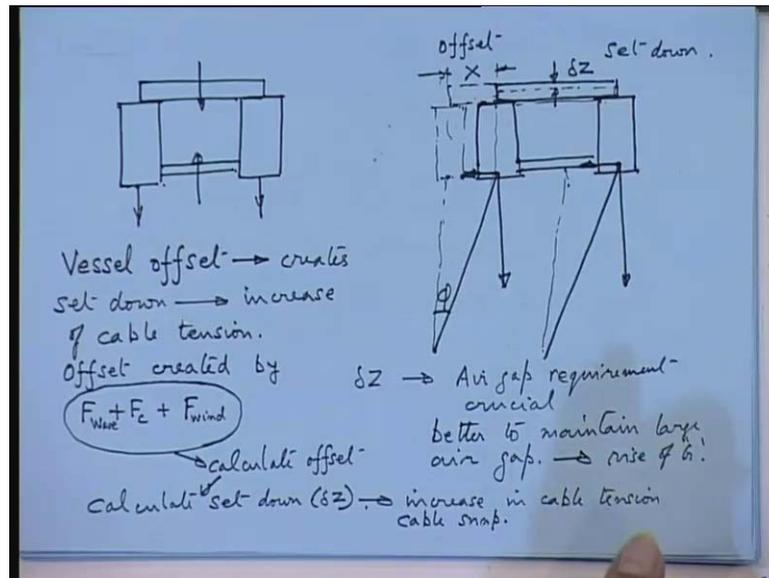 offset
set down.
x
δz
Vessel offset → creates
set down → increase
of cable tension.
offset created by
F_wave + F_c + F_wind
→ calculate offset
calculate set down (δz). → increase in cable tension
cable snap.
φ
δz → Air gap requirement
crucial
better to maintain large
air gap. → rise of G!